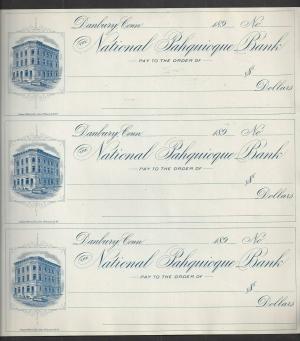 Danbury, Conn. 189 No
The National Pahquioque Bank
PAY TO THE ORDER OF
$
Dollars
Danbury, Conn. 189 No
The National Pahquioque Bank
PAY TO THE ORDER OF
$
Dollars
Danbury, Conn. 189 No
The National Pahquioque Bank
PAY TO THE ORDER OF
$
Dollars